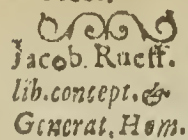 Jacob. Rueff.
lib. concept. &
Generat. Hom.